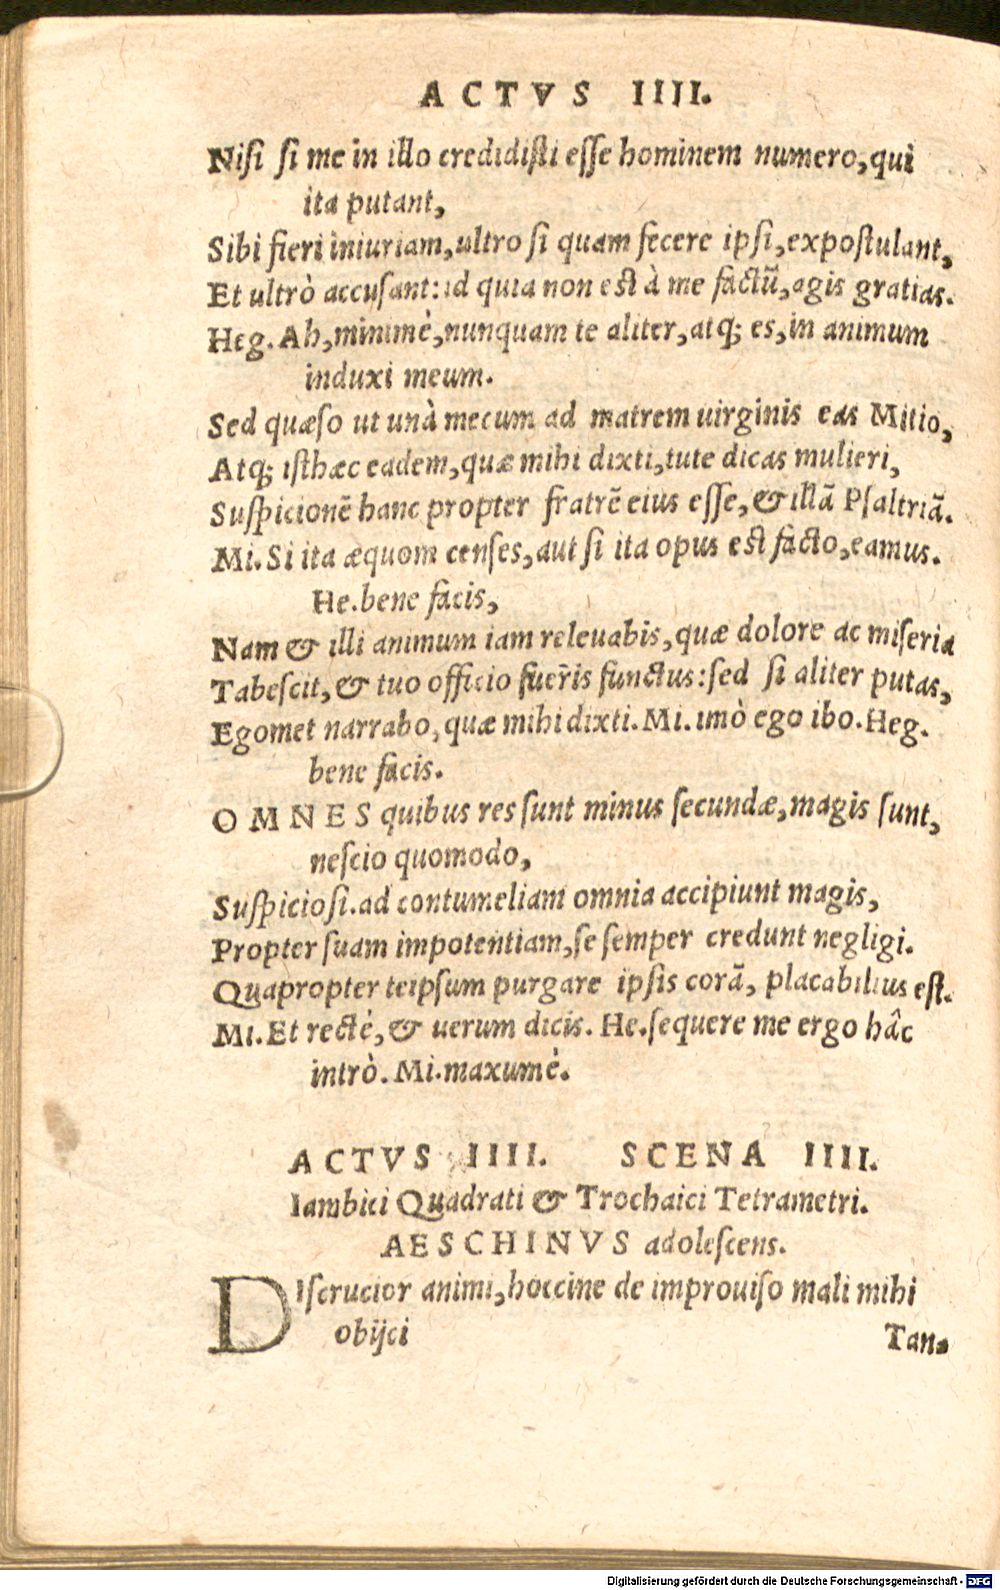 ACTVS IIII.
Nisi si me in illo credidisti esse hominem numero, qui
ita putant,
Sibi fieri iniuriam, ultro si quam fecere ipsi, expostulant,
Et ultrò accusant: id quia non est à me factũ, agis gratias.
Heg. Ah, minimè, nunquam te aliter, atq; es, in animum
induxi meum.
Sed quæso ut unà mecum ad matrem uirginis eas Mitio,
Atq; isthæc eadem, quæ mihi dixti, tute dicas mulieri,
Suspicionẽ hanc propter fratrẽ eius esse, & illã Psaltriã.
Mi. Si ita æquom censes, aut si ita opus est facto, eamus.
He. bene facis,
Nam & illi animum iam releuabis, quæ dolore ac miseria
Tabescit, & tuo officio fuer̃is functus: sed si aliter putas,
Egomet narrabo, quæ mihi dixti. Mi. imò ego ibo. Heg.
bene facis.
OMNES quibus res sunt minus secundæ, magis sunt,
nescio quomodo,
Suspiciosi. ad contumeliam omnia accipiunt magis,
Propter suam impotentiam, se semper credunt negligi.
Quapropter teipsum purgare ipsis corã, placabilius est.
Mi. Et rectè, & uerum dicis. He. sequere me ergo hâc
intrò. Mi. maxumè.
ACTVS IIII. SCENA IIII.
Iambici Quadrati & Trochaici Tetrametri.
AESCHINVS adolescens.
DIscrucior animi, hoccine de improuiso mali mihi
obijci
Tan-
Digitalisierung gefördert durch die Deutsche Forschungsgemeinschaft - DFG